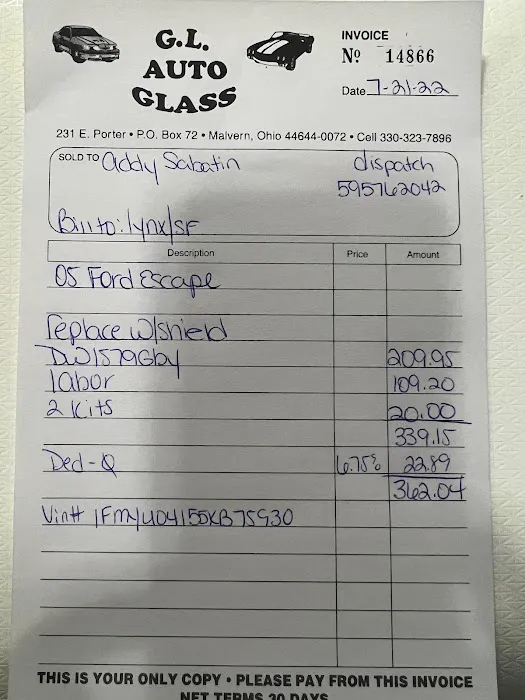 G.L.
AUTO
GLASS
INVOICE
Nº 14866
Date 7-21-22
231 E. Porter • P.O. Box 72 • Malvern, Ohio 44644-0072 • Cell 330-323-7896
SOLD TO Addy Sabatin dispatch
595762042
Bill to: lynx/SF
Description Price Amount
05 Ford Escape
replace w/shield
DW1579Gby 209.95
labor 109.20
2 Kits 20.00
339.15
Ded-0 6.75% 22.89
362.04
Vin#
THIS IS YOUR ONLY COPY • PLEASE PAY FROM THIS INVOICE
NET TERMS 30 DAYS